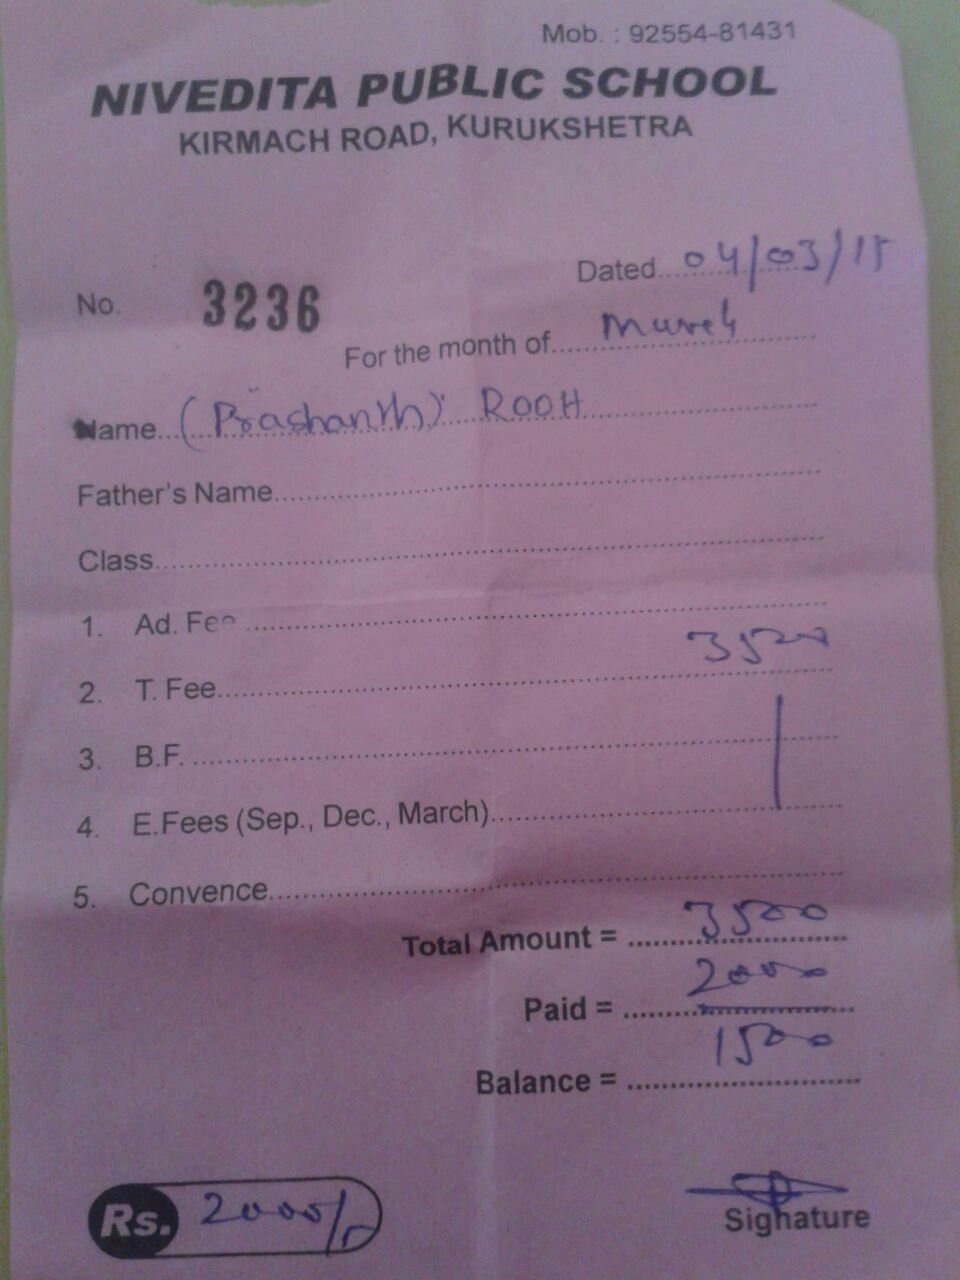 Mob. : 92554-81431
NIVEDITA PUBLIC SCHOOL
KIRMACH ROAD, KURUKSHETRA
Dated 04/03/15
No. 3236
For the month of March
Name (Prashanth) ROOH
Father's Name
Class
1. Ad. Fee
2. T. Fee 3500
3. B.F.
4. E.Fees (Sep., Dec., March)
5. Convence
Total Amount = 3500
Paid = 2000
Balance = 1500
Rs. 2000/-
Signature